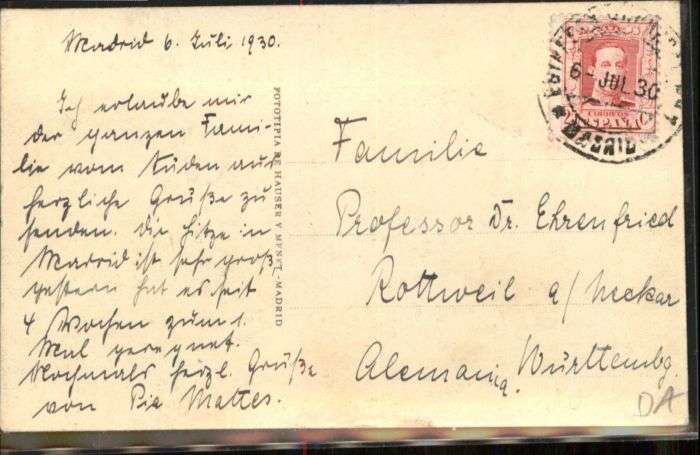 Madrid 6. Juli 1930.
Ich erlaube mir
der ganzen Fami-
lie vom Süden aus
herzliche Grüße zu
senden. Die Hitze in
Madrid ist sehr groß
gestern hat es seit
4 Wochen zum 1.
Mal geregnet.
Nochmals herzl. Grüße
von Pia Mattes.
FOTOTIPIA DE HAUSER Y MENET.-MADRID
6- JUL. 30
CORREOS
ESPAÑA
MADRID
Familie
Professor Dr. Ehrenfried
Rottweil a/Neckar
Alemania. Württembg.
DA